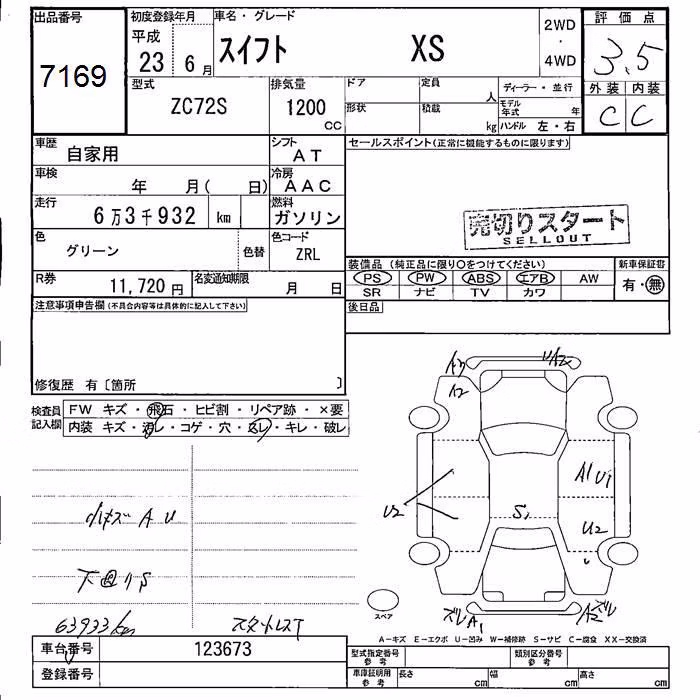 出品番号
7169
初度登録年月
平成
23 6月
車名・グレード
スイフト XS
2WD
・
4WD
評価点
3.5
外装 内装
C C
型式
ZC72S
排気量
1200
CC
ドア
定員
人
形状
積載
kg
ディーラー・並行
モデル年式 年
ハンドル 左・右
車歴
自家用
シフト
AT
セールスポイント(正常に機能するものに限ります)
車検
年 月( 日)
冷房
AAC
走行
6万3千932 km
燃料
ガソリン
売切りスタート
SELLOUT
色
グリーン
色替
色コード
ZRL
装備品(純正品に限り○をつけてください)
PS PW ABS エアB AW
SR ナビ TV カワ
新車保証書
有・無
R券
11,720円
名変通知期限
月 日
後日品
注意事項申告欄(不具合内容等は具体的に記入して下さい)
修復歴 有〔箇所 〕
検査員記入欄
FW キズ・飛石・ヒビ割・リペア跡・×要
内装 キズ・汚レ・コゲ・穴・スレ・キレ・破レ
A2
A1 U1
U2
S1
U2
小キズ A U
下回りS
63933km
ズレA1
A2ズレ
スペア
A-キズ E-エクボ U-凹み W-補修跡 S-サビ C-腐食 XX-交換済
車台番号
123673
登録番号
型式指定番号
参考
類別区分番号
参考
車庫証明用
参考
長さ cm
幅 cm
高さ cm